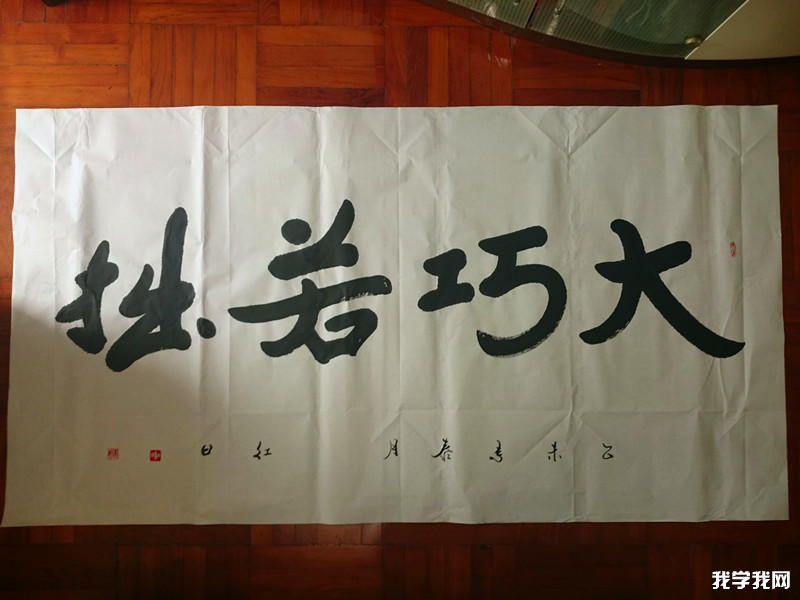 大巧若拙
乙未年春月 红日
我学我网